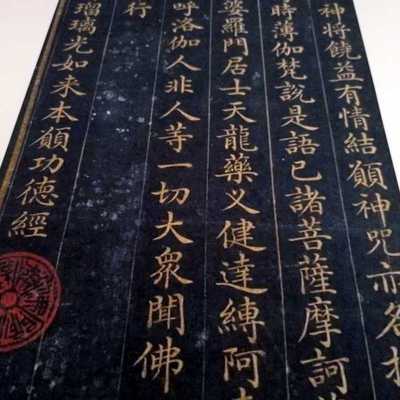 神将饒益有情結願神咒亦名
時薄伽梵說是語已諸菩薩摩訶
婆羅門居士天龍藥义健達縛阿
呼洛伽人非人等一切大眾聞佛
行
瑠璃光如来本願功德經